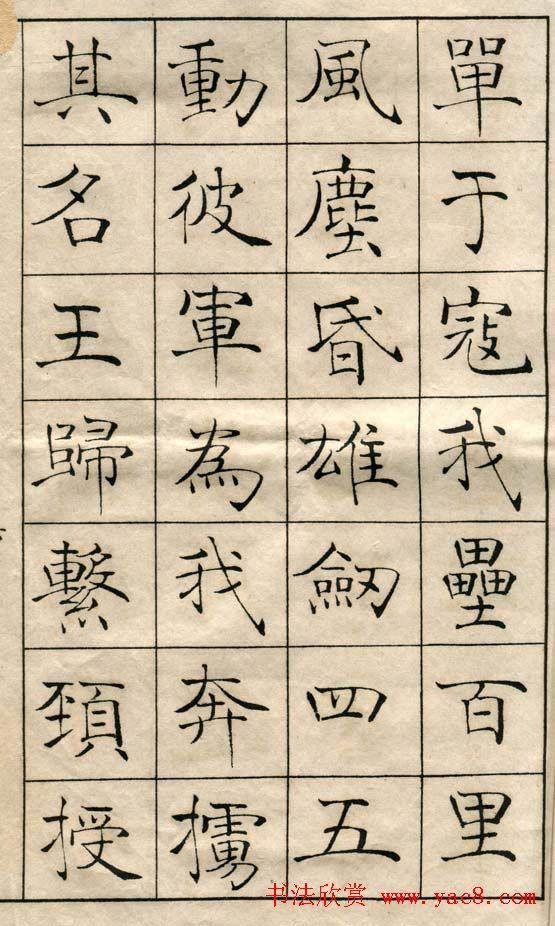 單于寇我壘百里
風塵昏雄劔四五
動彼軍為我奔擄
其名王歸繫頸授
书法欣赏 www.yac8.com